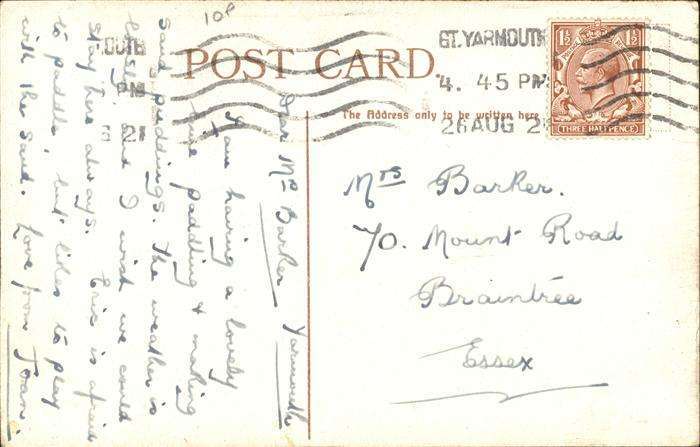 10P
POST CARD
The Address only to be written here
GT. YARMOUTH
4. 45 PM
26 AUG 2
THREE HALFPENCE
1½ 1½
OUTH
PM
2
Yarmouth
Dear Mrs Barker
I am having a lovely
time paddling & making
sand puddings. The weather is
and I wish we could
stay here always. Eric is afraid
to paddle, but likes to play
with the sand. Love from Joan.
Mrs Barker.
70. Mount Road
Braintree
Essex